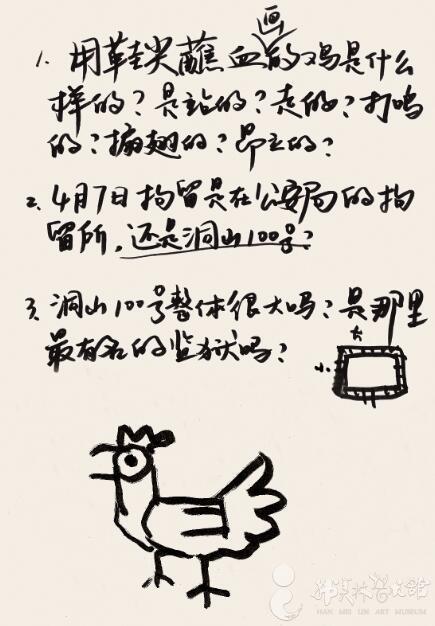 1. 用鞋尖蘸血画的鸡是什么
样的？是站的？走的？打鸣
的？搧翅的？昂立的？
2. 4月7日拘留是在公安局的拘
留所，还是洞山100号？
3. 洞山100号整体很大吗？是那里
最有名的监狱吗？
大
小
韩美林艺术馆
HAN MEI LIN ART MUSEUM